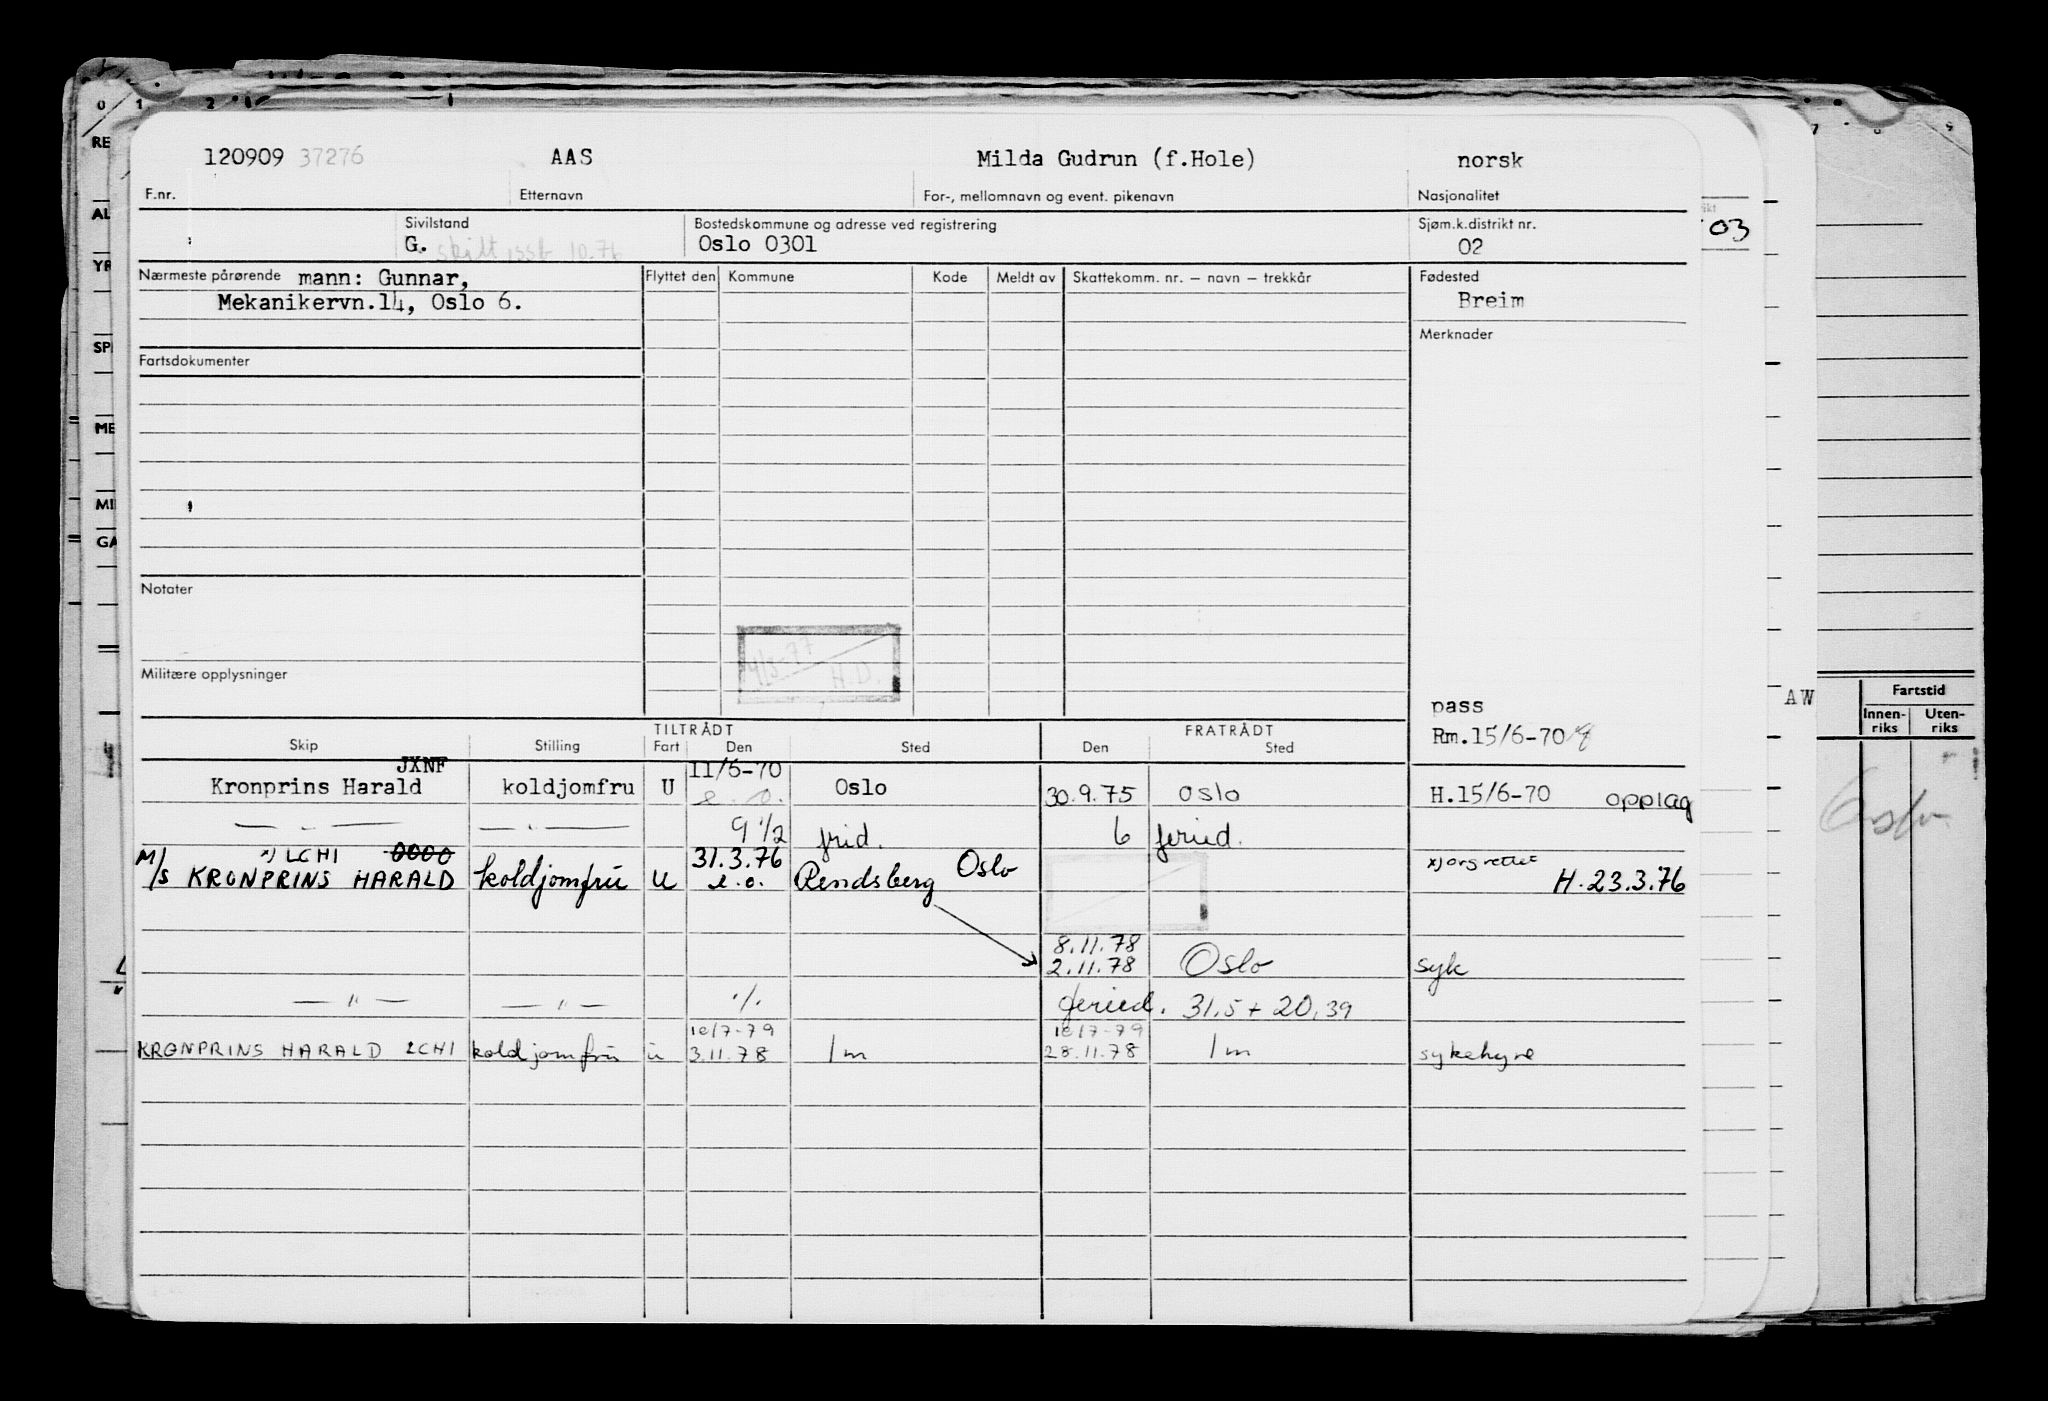 0 1 2
7 8 9
RE
AL
YR
SP
ME
MI
GA
120909 37276 AAS Milda Gudrun (f.Hole) norsk
F.nr. Etternavn For-, mellomnavn og event. pikenavn Nasjonalitet
Sivilstand Bostedskommune og adresse ved registrering Sjøm.k.distrikt nr.
G. skilt 10.76 Oslo 0301 02
03
Nærmeste pårørende mann: Gunnar, Flyttet den Kommune Kode Meldt av Skattekomm. nr. — navn — trekkår Fødested
Mekanikervn.14, Oslo 6. Breim
Merknader
Fartsdokumenter
Notater
4/3-77
H.D.
Militære opplysninger
pass
Rm.15/6-70
AW
Fartstid
Innen-riks Uten-riks
Oslo
TILTRÅDT FRATRÅDT
Skip Stilling Fart Den Sted Den Sted
JXNF 11/6-70
Kronprins Harald koldjomfru U e.o. Oslo 30.9.75 Oslo H.15/6-70 opplag
— " — — " — 9 1/2 frid. 6 feried.
x) LCHI 0000 31.3.76 Oslo x) org rettet
M/S KRONPRINS HARALD koldjomfru U e.o. Rendsberg H.23.3.76
8.11.78
2.11.78 Oslo syk
— " — — " — ./. feried. 31,5 + 20,39
10/7-79 10/7-79
KRONPRINS HARALD LCHI koldjomfru u 3.11.78 1 m 28.11.78 1 m sykehyre